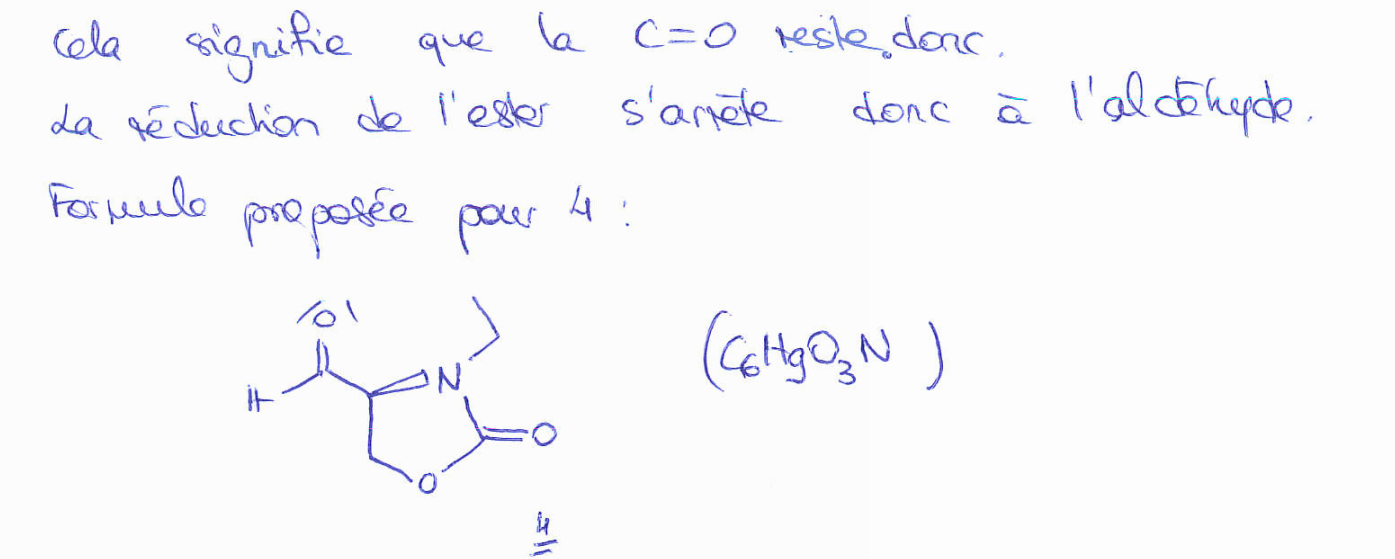 Cela signifie que la C=O reste donc.
La réduction de l'ester s'arrête donc à l'aldéhyde.
Formule proposée pour 4 :
O
N
(C6H9O3N)
H
O
O
4